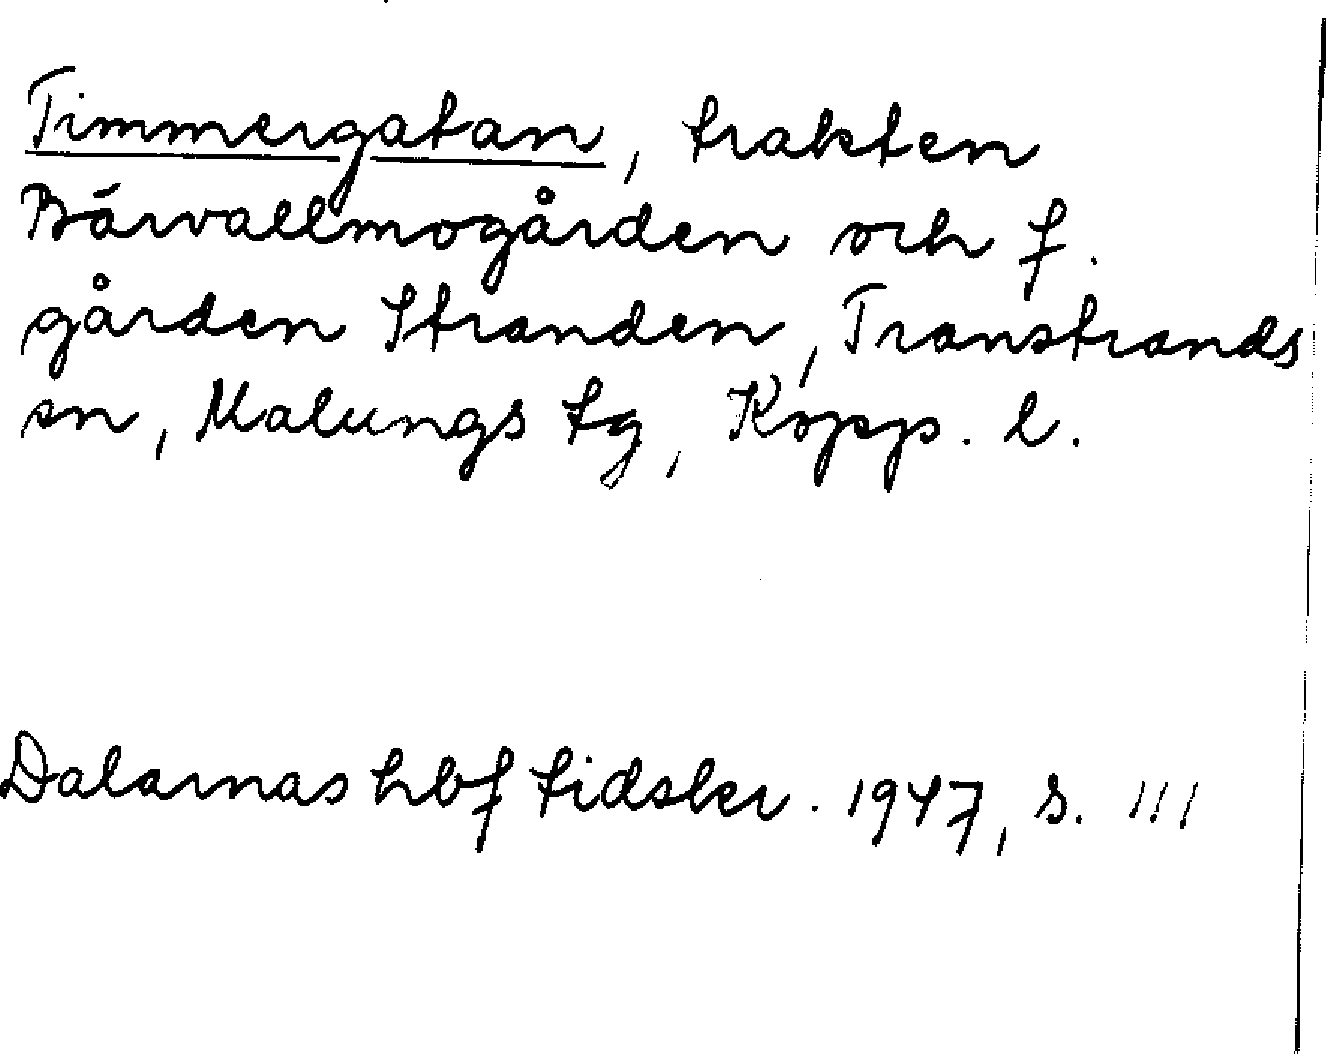 Timmergatan, trakten
Bärvallmogården och f.
gården Stranden, Transtrands
sn, Malungs tg, Kopp. l.
Dalarnas hbf tidsber. 1947, s. 111